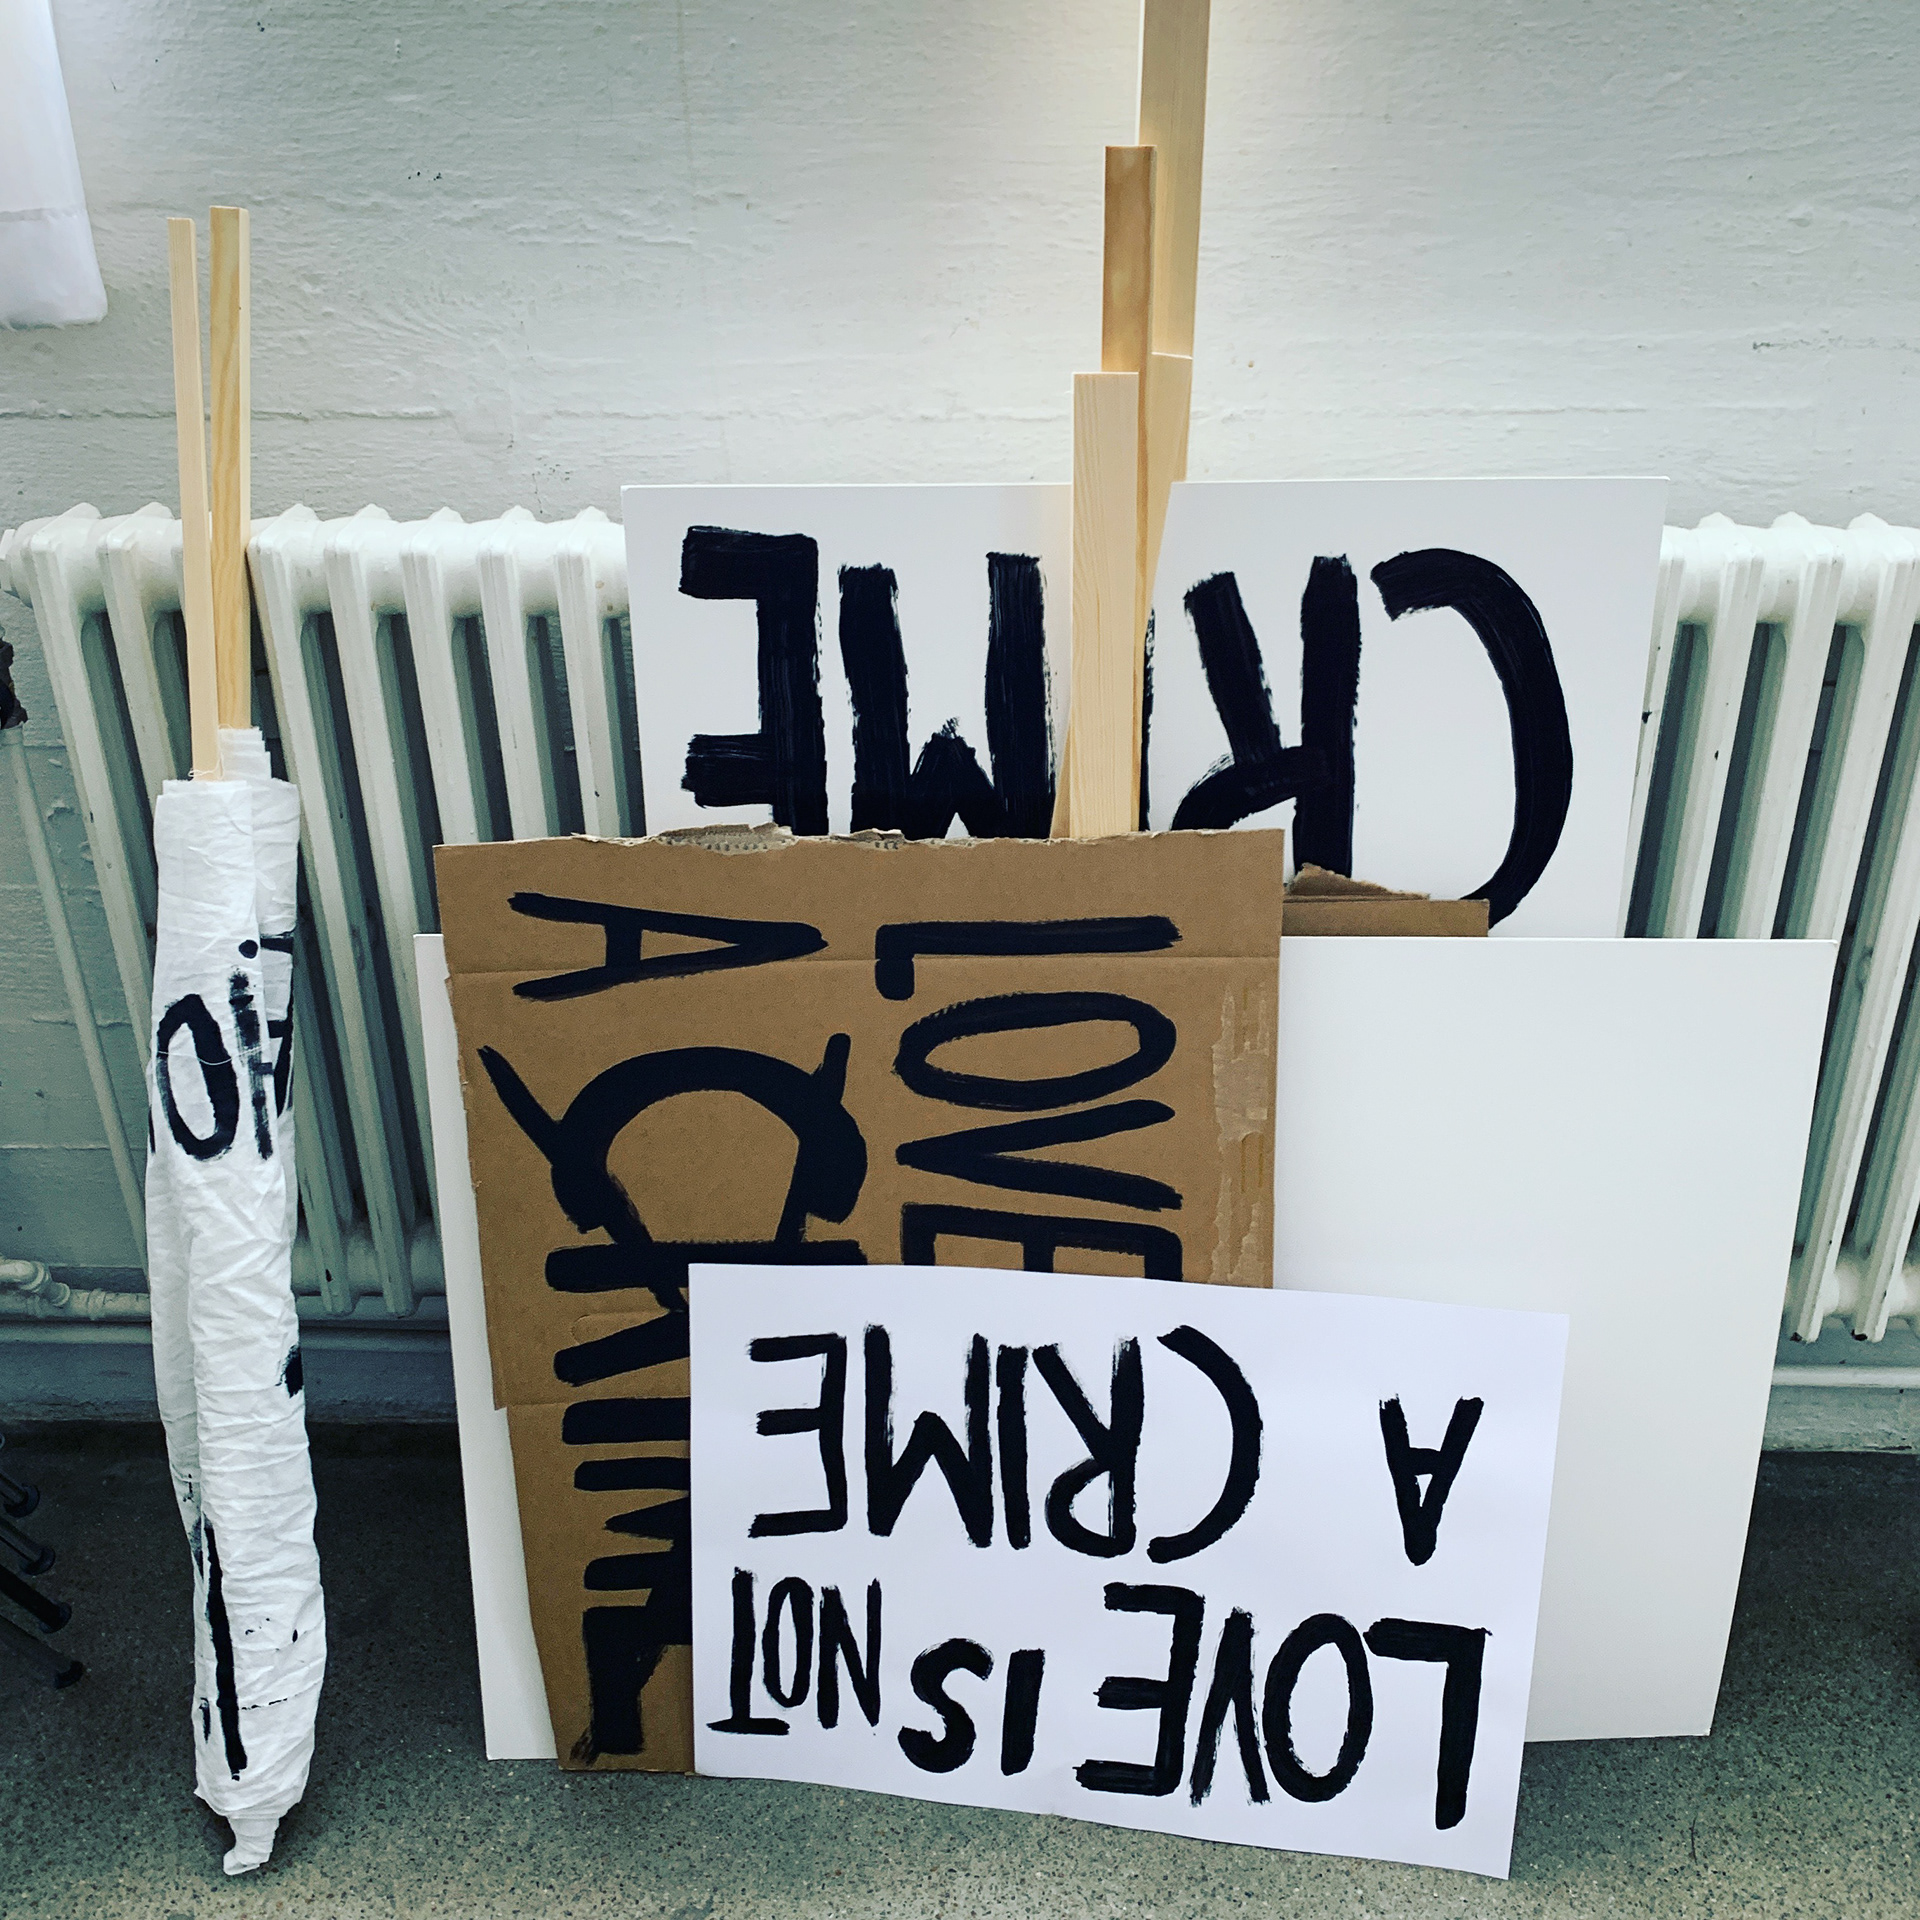 CRIME
LOVE
A CRIME
LOVE IS NOT
A CRIME